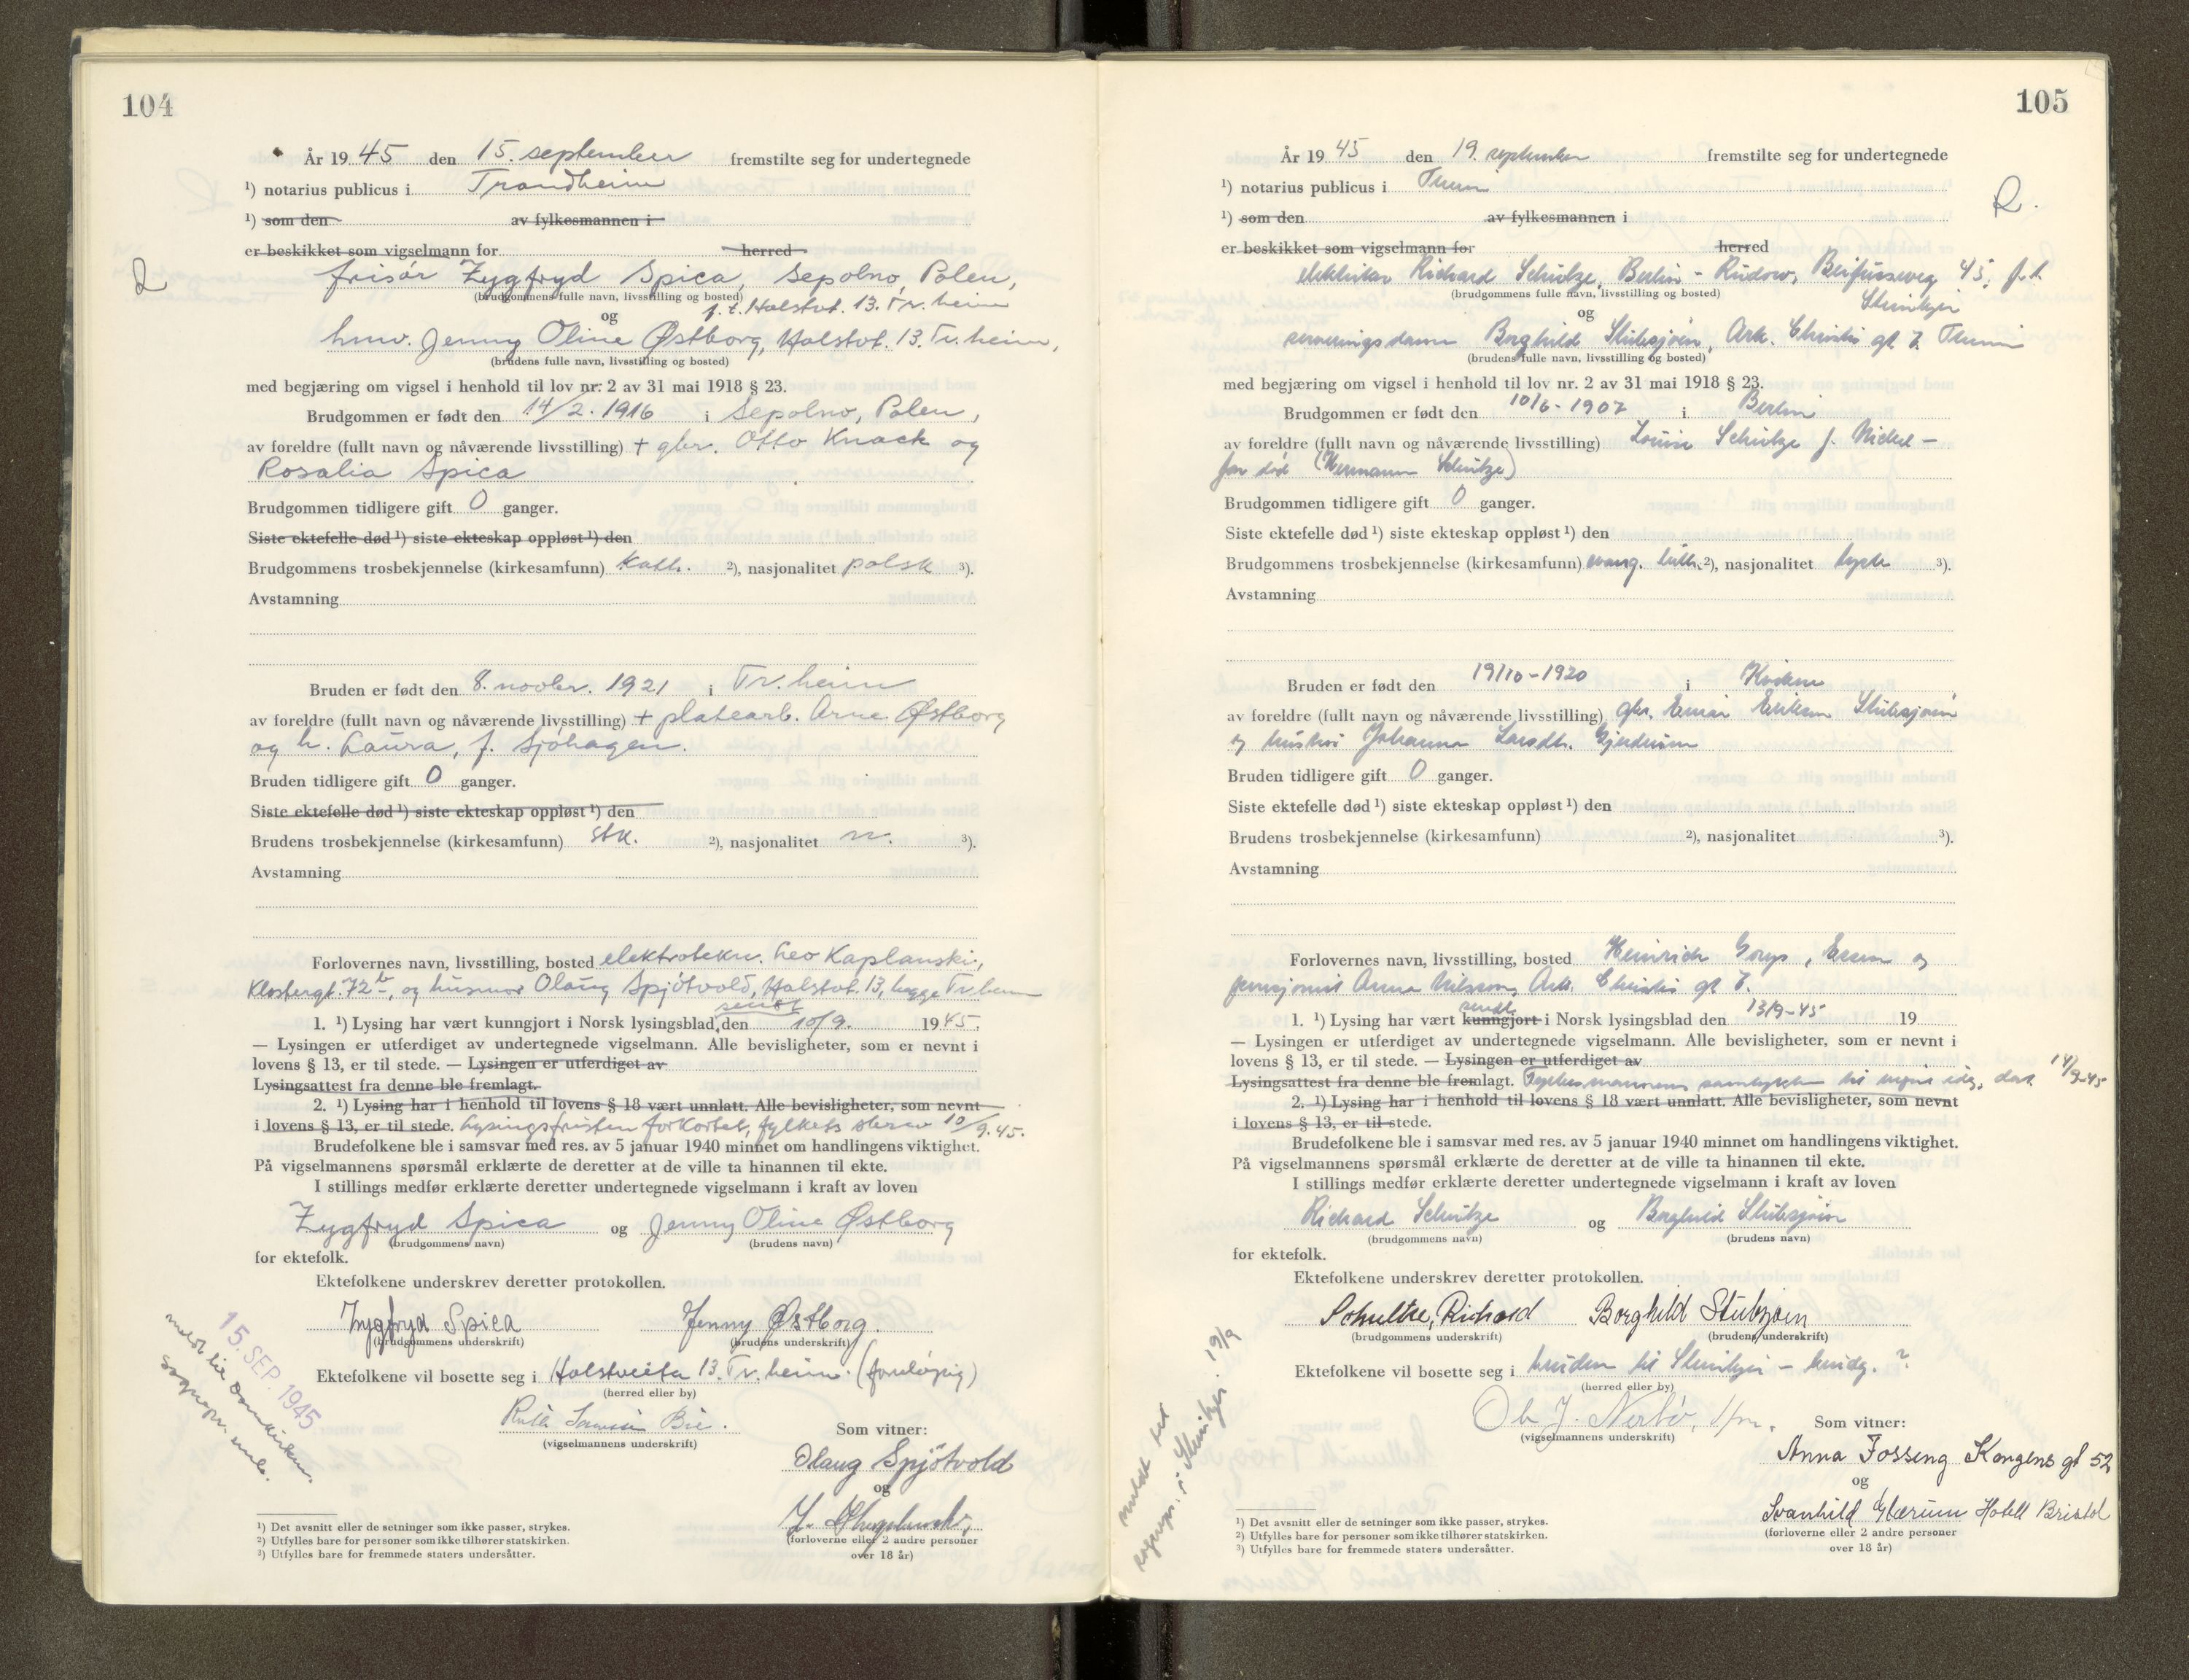 104
År 1945 den 15. september fremstilte seg for undertegnede
¹) notarius publicus i Trondheim
¹) som den av fylkesmannen i
er beskikket som vigselmann for herred
frisør Zygfryd Spica, Sepolno, Polen,
(brudgommens fulle navn, livsstilling og bosted)
f. t. Holstvt. 13. Tr. heim
og
hmv. Jenny Oline Østborg, Holstvt. 13. Tr. heim,
(brudens fulle navn, livsstilling og bosted)
med begjæring om vigsel i henhold til lov nr. 2 av 31 mai 1918 § 23.
Brudgommen er født den 14/2. 1916 i Sepolno, Polen,
av foreldre (fullt navn og nåværende livsstilling) + gbr. Otto Knack og
Rosalia Spica
Brudgommen tidligere gift 0 ganger.
Siste ektefelle død ¹) siste ekteskap oppløst ¹) den
Brudgommens trosbekjennelse (kirkesamfunn) kath. ²), nasjonalitet polsk ³).
Avstamning
Bruden er født den 8. novbr. 1921 i Tr. heim
av foreldre (fullt navn og nåværende livsstilling) + platearb. Arne Østborg
og h. Laura, f. Sjøhagen.
Bruden tidligere gift 0 ganger.
Siste ektefelle død ¹) siste ekteskap oppløst ¹) den
Brudens trosbekjennelse (kirkesamfunn) stk. ²), nasjonalitet n. ³).
Avstamning
Forlovernes navn, livsstilling, bosted elektrotekn. Leo Kaplanski,
Klostergt. 72b, og husmor Olaug Spjøtvold, Holstvt. 13, begge Tr.heim
sendt
1. ¹) Lysing har vært kunngjort i Norsk lysingsblad den 10/9. 1945.
— Lysingen er utferdiget av undertegnede vigselmann. Alle bevisligheter, som er nevnt i
lovens § 13, er til stede. — Lysingen er utferdiget av
Lysingsattest fra denne ble fremlagt.
2. ¹) Lysing har i henhold til lovens § 18 vært unnlatt. Alle bevisligheter, som nevnt
i lovens § 13, er til stede. Lysingsfristen forkortet, fylkets skriv 10/9.45.
Brudefolkene ble i samsvar med res. av 5 januar 1940 minnet om handlingens viktighet.
På vigselmannens spørsmål erklærte de deretter at de ville ta hinannen til ekte.
I stillings medfør erklærte deretter undertegnede vigselmann i kraft av loven
Zygfryd Spica og Jenny Oline Østborg
(brudgommens navn) (brudens navn)
for ektefolk.
Ektefolkene underskrev deretter protokollen.
Zygfryd Spica Jenny Østborg.
(brudgommens underskrift) (brudens underskrift)
Ektefolkene vil bosette seg i Holstveita 13. Tr. heim. (foreløpig)
(herred eller by)
(vigselmannens underskrift)
Som vitner:
Olaug Spjøtvold
og
(forloverne eller 2 andre personer
over 18 år)
15. SEP. 1945
meldt til Domkirken
¹) Det avsnitt eller de setninger som ikke passer, strykes.
²) Utfylles bare for personer som ikke tilhører statskirken.
³) Utfylles bare for fremmede staters undersåtter.
105
År 1945 den 19. september fremstilte seg for undertegnede
¹) notarius publicus i Theim
R.
¹) som den av fylkesmannen i
er beskikket som vigselmann for herred
elektriker Richard Schultze, Berlin - Rudow, Beifussweg 45, f.t.
(brudgommens fulle navn, livsstilling og bosted) Steinkjer
og
serveringsdame Borghild Stubsjøen, Ark. Christies gt 7. Theim
(brudens fulle navn, livsstilling og bosted)
med begjæring om vigsel i henhold til lov nr. 2 av 31 mai 1918 § 23.
Brudgommen er født den 10/6 - 1907 i Berlin
av foreldre (fullt navn og nåværende livsstilling) Louise Schultze f. Nickel -
far død (Hermann Schultze)
Brudgommen tidligere gift 0 ganger.
Siste ektefelle død ¹) siste ekteskap oppløst ¹) den
Brudgommens trosbekjennelse (kirkesamfunn) evang. luth. ²), nasjonalitet tysk ³).
Avstamning
Bruden er født den 19/10 - 1920 i Kvikne
av foreldre (fullt navn og nåværende livsstilling) gbr. Einar Eriksen Stubsjøen
og hustru Johanna Larsdtr. Gjerdrum
Bruden tidligere gift 0 ganger.
Siste ektefelle død ¹) siste ekteskap oppløst ¹) den
Brudens trosbekjennelse (kirkesamfunn) ²), nasjonalitet ³).
Avstamning
Forlovernes navn, livsstilling, bosted Heinrich Essen og
Anna Nilsson, Ark. Christies gt 7.
sendt
1. ¹) Lysing har vært kunngjort i Norsk lysingsblad den 13/9 - 45 19
— Lysingen er utferdiget av undertegnede vigselmann. Alle bevisligheter, som er nevnt i
lovens § 13, er til stede. — Lysingen er utferdiget av
Lysingsattest fra denne ble fremlagt. Fylkesmannens samtykke til vigsel idag, dat. 14/9-45
2. ¹) Lysing har i henhold til lovens § 18 vært unnlatt. Alle bevisligheter, som nevnt
i lovens § 13, er til stede.
Brudefolkene ble i samsvar med res. av 5 januar 1940 minnet om handlingens viktighet.
På vigselmannens spørsmål erklærte de deretter at de ville ta hinannen til ekte.
I stillings medfør erklærte deretter undertegnede vigselmann i kraft av loven
Richard Schultze og Borghild Stubsjøen
(brudgommens navn) (brudens navn)
for ektefolk.
Ektefolkene underskrev deretter protokollen.
Schultze, Richard Borghild Stubsjøen
(brudgommens underskrift) (brudens underskrift)
Ektefolkene vil bosette seg i bruden til Steinkjer - brudg. ?
(herred eller by)
(vigselmannens underskrift)
Som vitner:
Anna Fosseng Kongens gt 52
og
Svanhild Glærum Hotell Bristol
(forloverne eller 2 andre personer
over 18 år)
meldt til
sognepr. i Steinkjer 19/9
¹) Det avsnitt eller de setninger som ikke passer, strykes.
²) Utfylles bare for personer som ikke tilhører statskirken.
³) Utfylles bare for fremmede staters undersåtter.